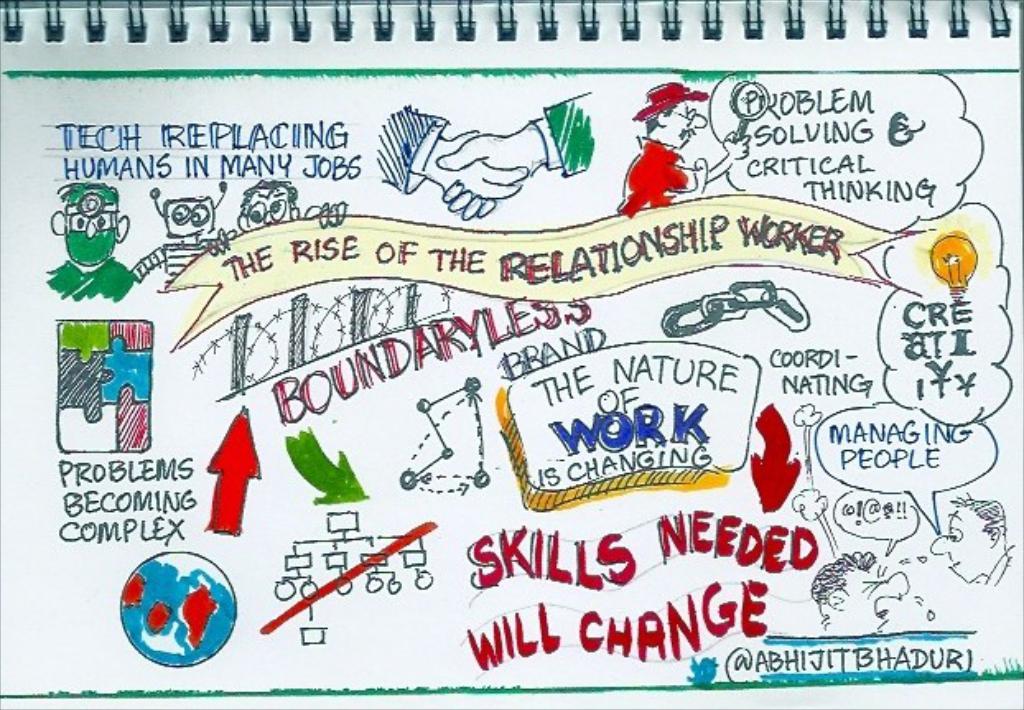 TECH REPLACING
HUMANS IN MANY JOBS
PROBLEM
SOLVING &
CRITICAL
THINKING
THE RISE OF THE RELATIONSHIP WORKER
CRE
ATI
VITY
BOUNDARYLESS
BRAND
THE NATURE
OF
WORK
IS CHANGING
COORDI-
NATING
MANAGING
PEOPLE
@!@*!!
PROBLEMS
BECOMING
COMPLEX
SKILLS NEEDED
WILL CHANGE
@ABHIJITBHADURI